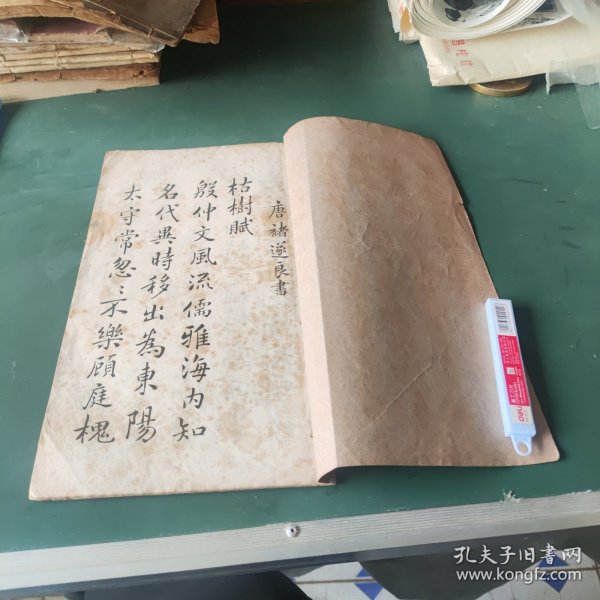 唐褚遂良書
枯樹賦
殷仲文風流儒雅海内知
名代異時移出為東陽
太守常忽〻不樂顧庭槐
孔夫子旧書网
www.kongfz.com